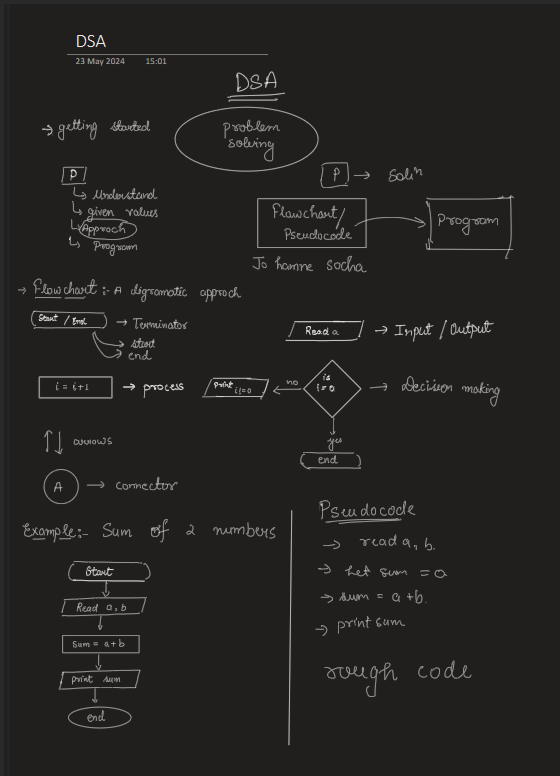 DSA
23 May 2024 15:01
DSA
→ getting started
problem
solving
P
↳ Understand
↳ given values
↳ Approch
↳ Program
P → Solⁿ
Flowchart/
Pseudocode
Program
Jo hamne socha
→ Flowchart :- A digramatic approch
Start / End → Terminator
start
end
Read a → Input / Output
i = i+1 → process
print i!=0
no
is
i=0
→ Decision making
yes
end
↑↓ arrows
A → connector
Example:- Sum of 2 numbers
Start
Read a,b
Sum = a+b
print sum
end
Pseudocode
→ read a, b.
→ let sum = 0
→ sum = a+b.
→ print sum
rough code